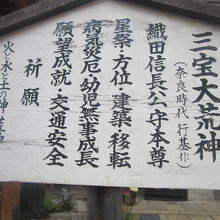 三宝大荒神
（奈良時代 行基作）
織田信長公守本尊
星祭・方位・建築・移転
病気災厄・幼児無事成長
願望成就・交通安全
祈願
火と水と土の神